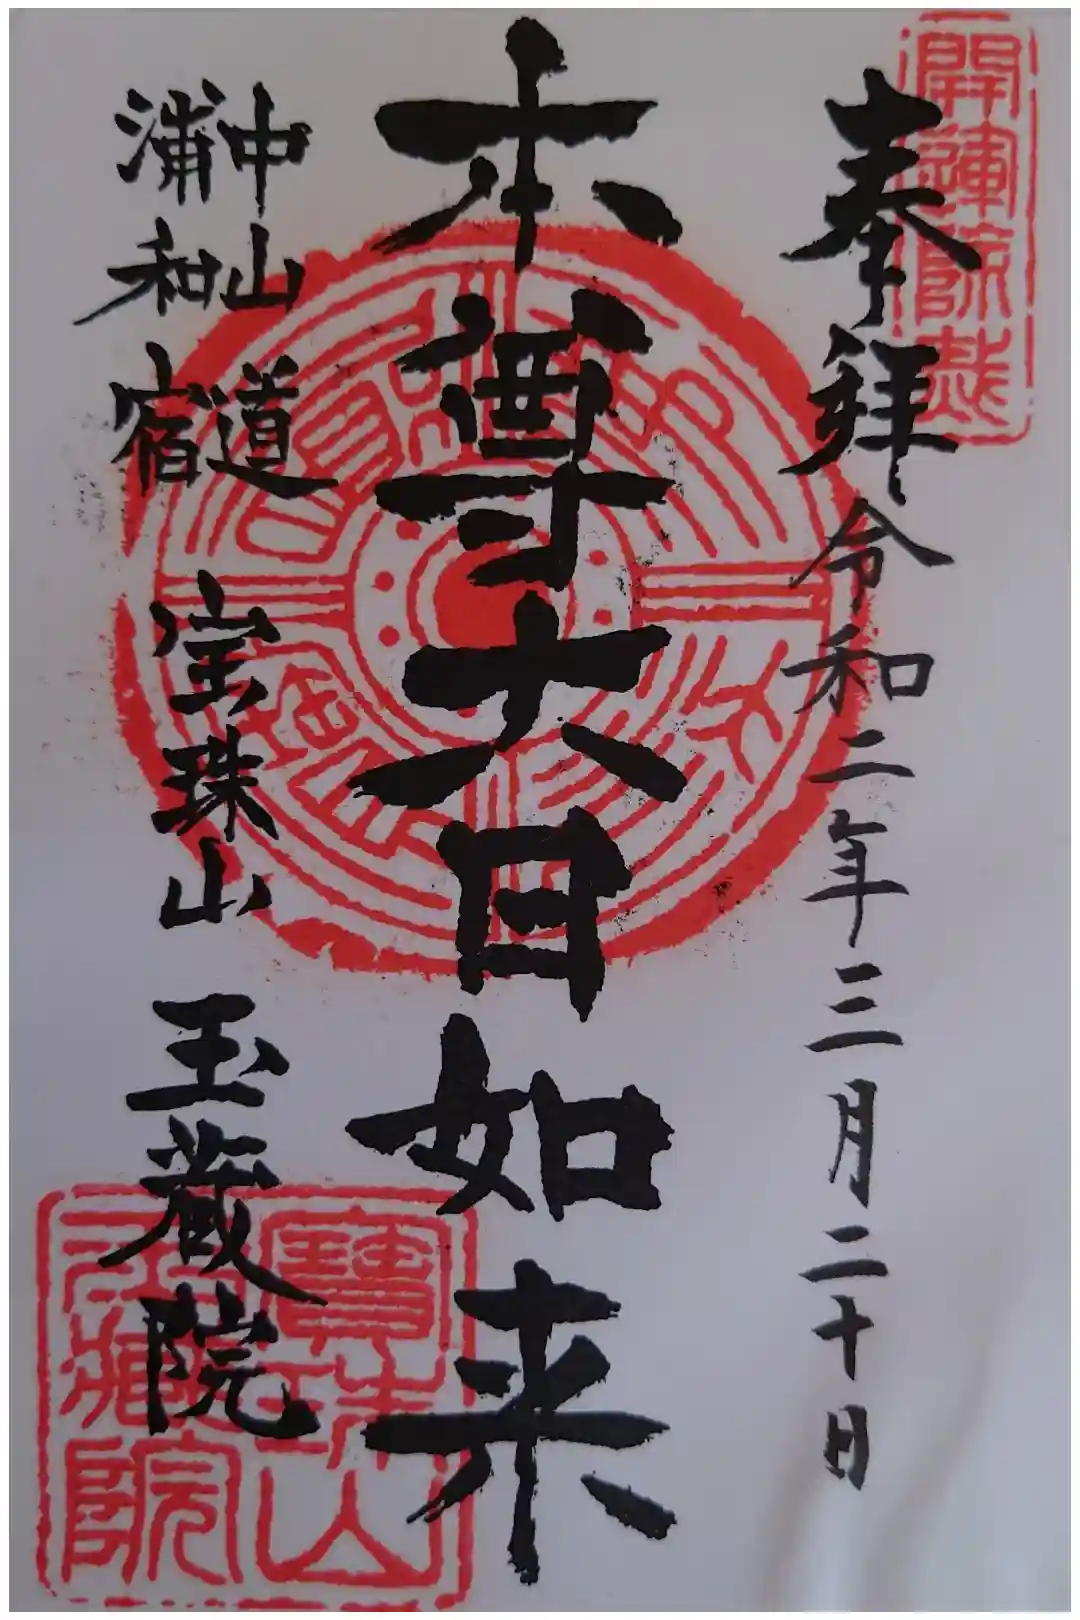 奉拝
令和二年三月二十日
本尊大日如来
中山道
浦和宿
宝珠山
玉蔵院
寶珠山
玉藏院